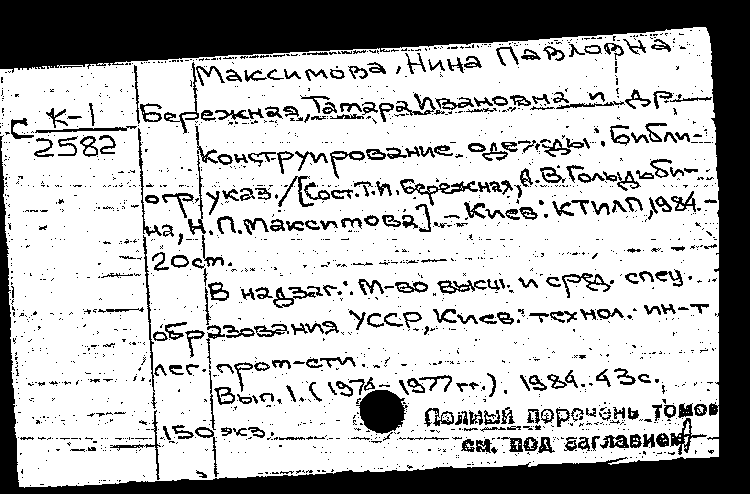 Максимова, Нина Павловна.
С К-1
2582
Бережная, Тамара Ивановна и др.
Конструирование одежды : Библи-
огр. указ. / [Сост. Т.И. Бережная, А.В. Гольдьби-
на, Н.П. Максимова]. - Киев : КТИЛП, 1984. -
20 см.
В надзаг.: М-во высш. и сред. спец.
образования УССР, Киев. технол. ин-т
лег. пром-сти.
Вып. 1. (1974-1977 гг.). 1984. 43с.
150 экз.
Полный перечень томов
см. под заглавием